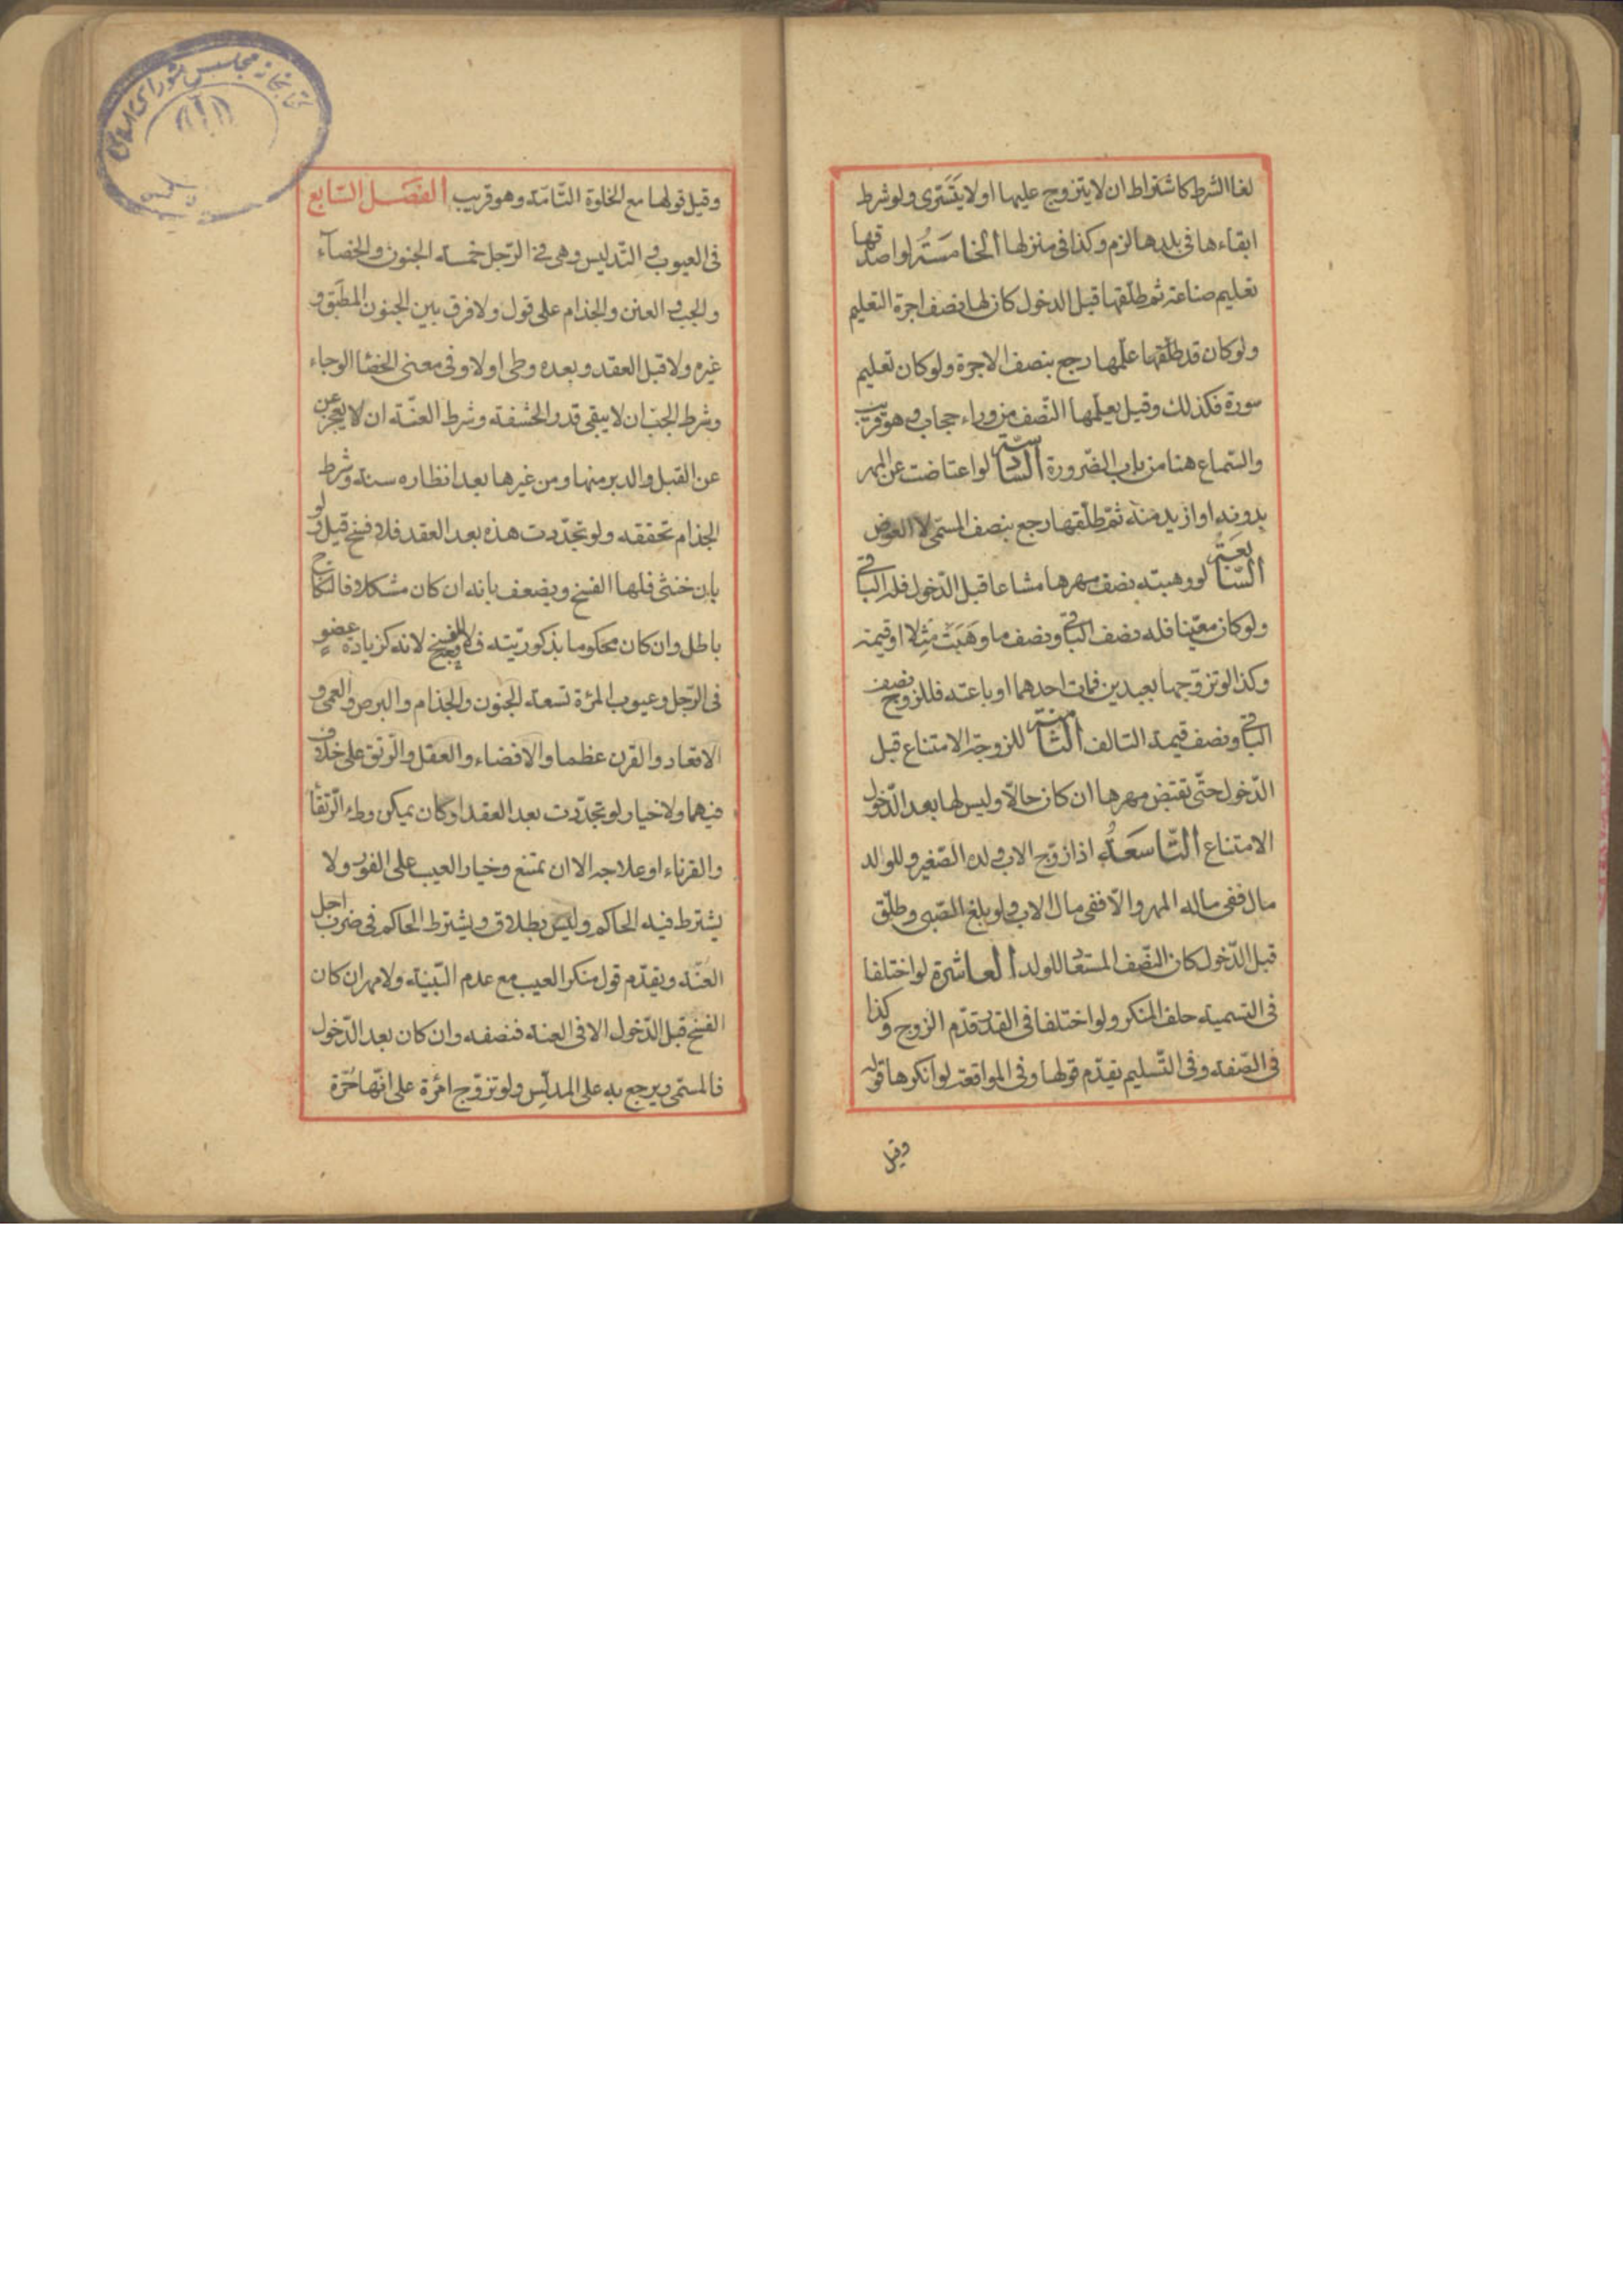 لغا الشرط كاشتراط ان لا يتزوج عليها او لا يَتَسَّرى ولو شرط
ابقاءها فى بلدها لزم وكذا فى منزلها الخامسَةُ لو اصدقها
تعليم صناعة ثم طلّقها قبل الدخول كان لها نصف اجرة التعليم
ولو كان قد طلّقها علّمها رجع بنصف الاجرة ولو كان تعليم
سورة فكذلك وقيل يعلّمها النّصف من وراء حجاب وهو قريب
والسّماع هنا من باب الضّرورة السّادسة لو اعتاضت عن المهر
بدونه او ازيد منه ثمّ طلّقها رجع بنصف المسمّى لا العوض
السّابعَة لو وهبته نصف مهرها مشاعا قبل الدّخول فله الباقى
ولو كان معيّنا فله نصف الباقى ونصف ما وهَبَتْ مِثلا او قيمة
وكذا لو تزوّجها بعبدين فمات احدهما او باعته فللزوج نصف
الباقى ونصف قيمة التالف الثّامنة للزوجة الامتناع قبل
الدّخول حتّى تقبض مهرها ان كان حالّا وليس لها بعد الدّخول
الامتناع التّاسعَةُ اذا زوّج الاب ولده الصّغير وللولد
مال ففى ماله المهر والّا ففى مال الاب ولو بلغ الصّبى وطلّق
قبل الدّخول كان النّصف المستعاد للولد العاشرة لو اختلفا
فى التسمية حلف المنكر ولو اختلفا فى القدر قدّم الزوج وكذا
فى الصّفة وفى التّسليم يقدّم قولها وفى المواقعة لو انكرها قوله
وقيل
وقيل قولها مع الخلوة التّامّة وهو قريب الفصَل السّابع
فى العيوب و التّدليس وهى فى الرّجل خمسة الجنون والخصآء
والجب و العنن والجذام على قول ولا فرق بين الجنون المطبَق و
غيره ولا قبل العقد وبعده وطى اولا وفى معنى الخصا الوجاء
وشرط الجبّ ان لا يبقى قدر الحشفة وشرط العنّة ان لا يعجز عن
عن القبل والدبر منها ومن غيرها بعد انظاره سنة وشرط
الجذام تحققه ولو تجدّدت هذه بعد العقد فلا فسخ وقيل لو
بان خنثى فلها الفسخ ويضعف بانه ان كان مشكلا فالنكاح
باطل وان كان محكوما بذكوريّته فلا وجه للفسخ لانه كزيادة عضوٍ
فى الرّجل وعيوب المرئة تسعة الجنون والجذام والبرص والعمى و
الاقعاد والقرن عظما والافضاء والعقل والرّتق على خلاف
فيهما ولا خيار لو تجدّدت بعد العقد او كان يمكن وطء الرّتقأ
والقرناء او علاجه الا ان تمتنع وخيار العيب على الفور ولا
يشترط فيه الحاكم وليس بطلاق ويشترط الحاكم فى ضرب اجل
العنّة ويقدّم قول منكر العيب مع عدم البّينة ولا مهر ان كان
الفسخ قبل الدّخول الا فى العنة فنصفه وان كان بعد الدّخول
فالمسمّى ويرجع به على المدلّس ولو تزوّج امرُة على انّها حُرّة
كتابخانه مجلس شوراى اسلامى